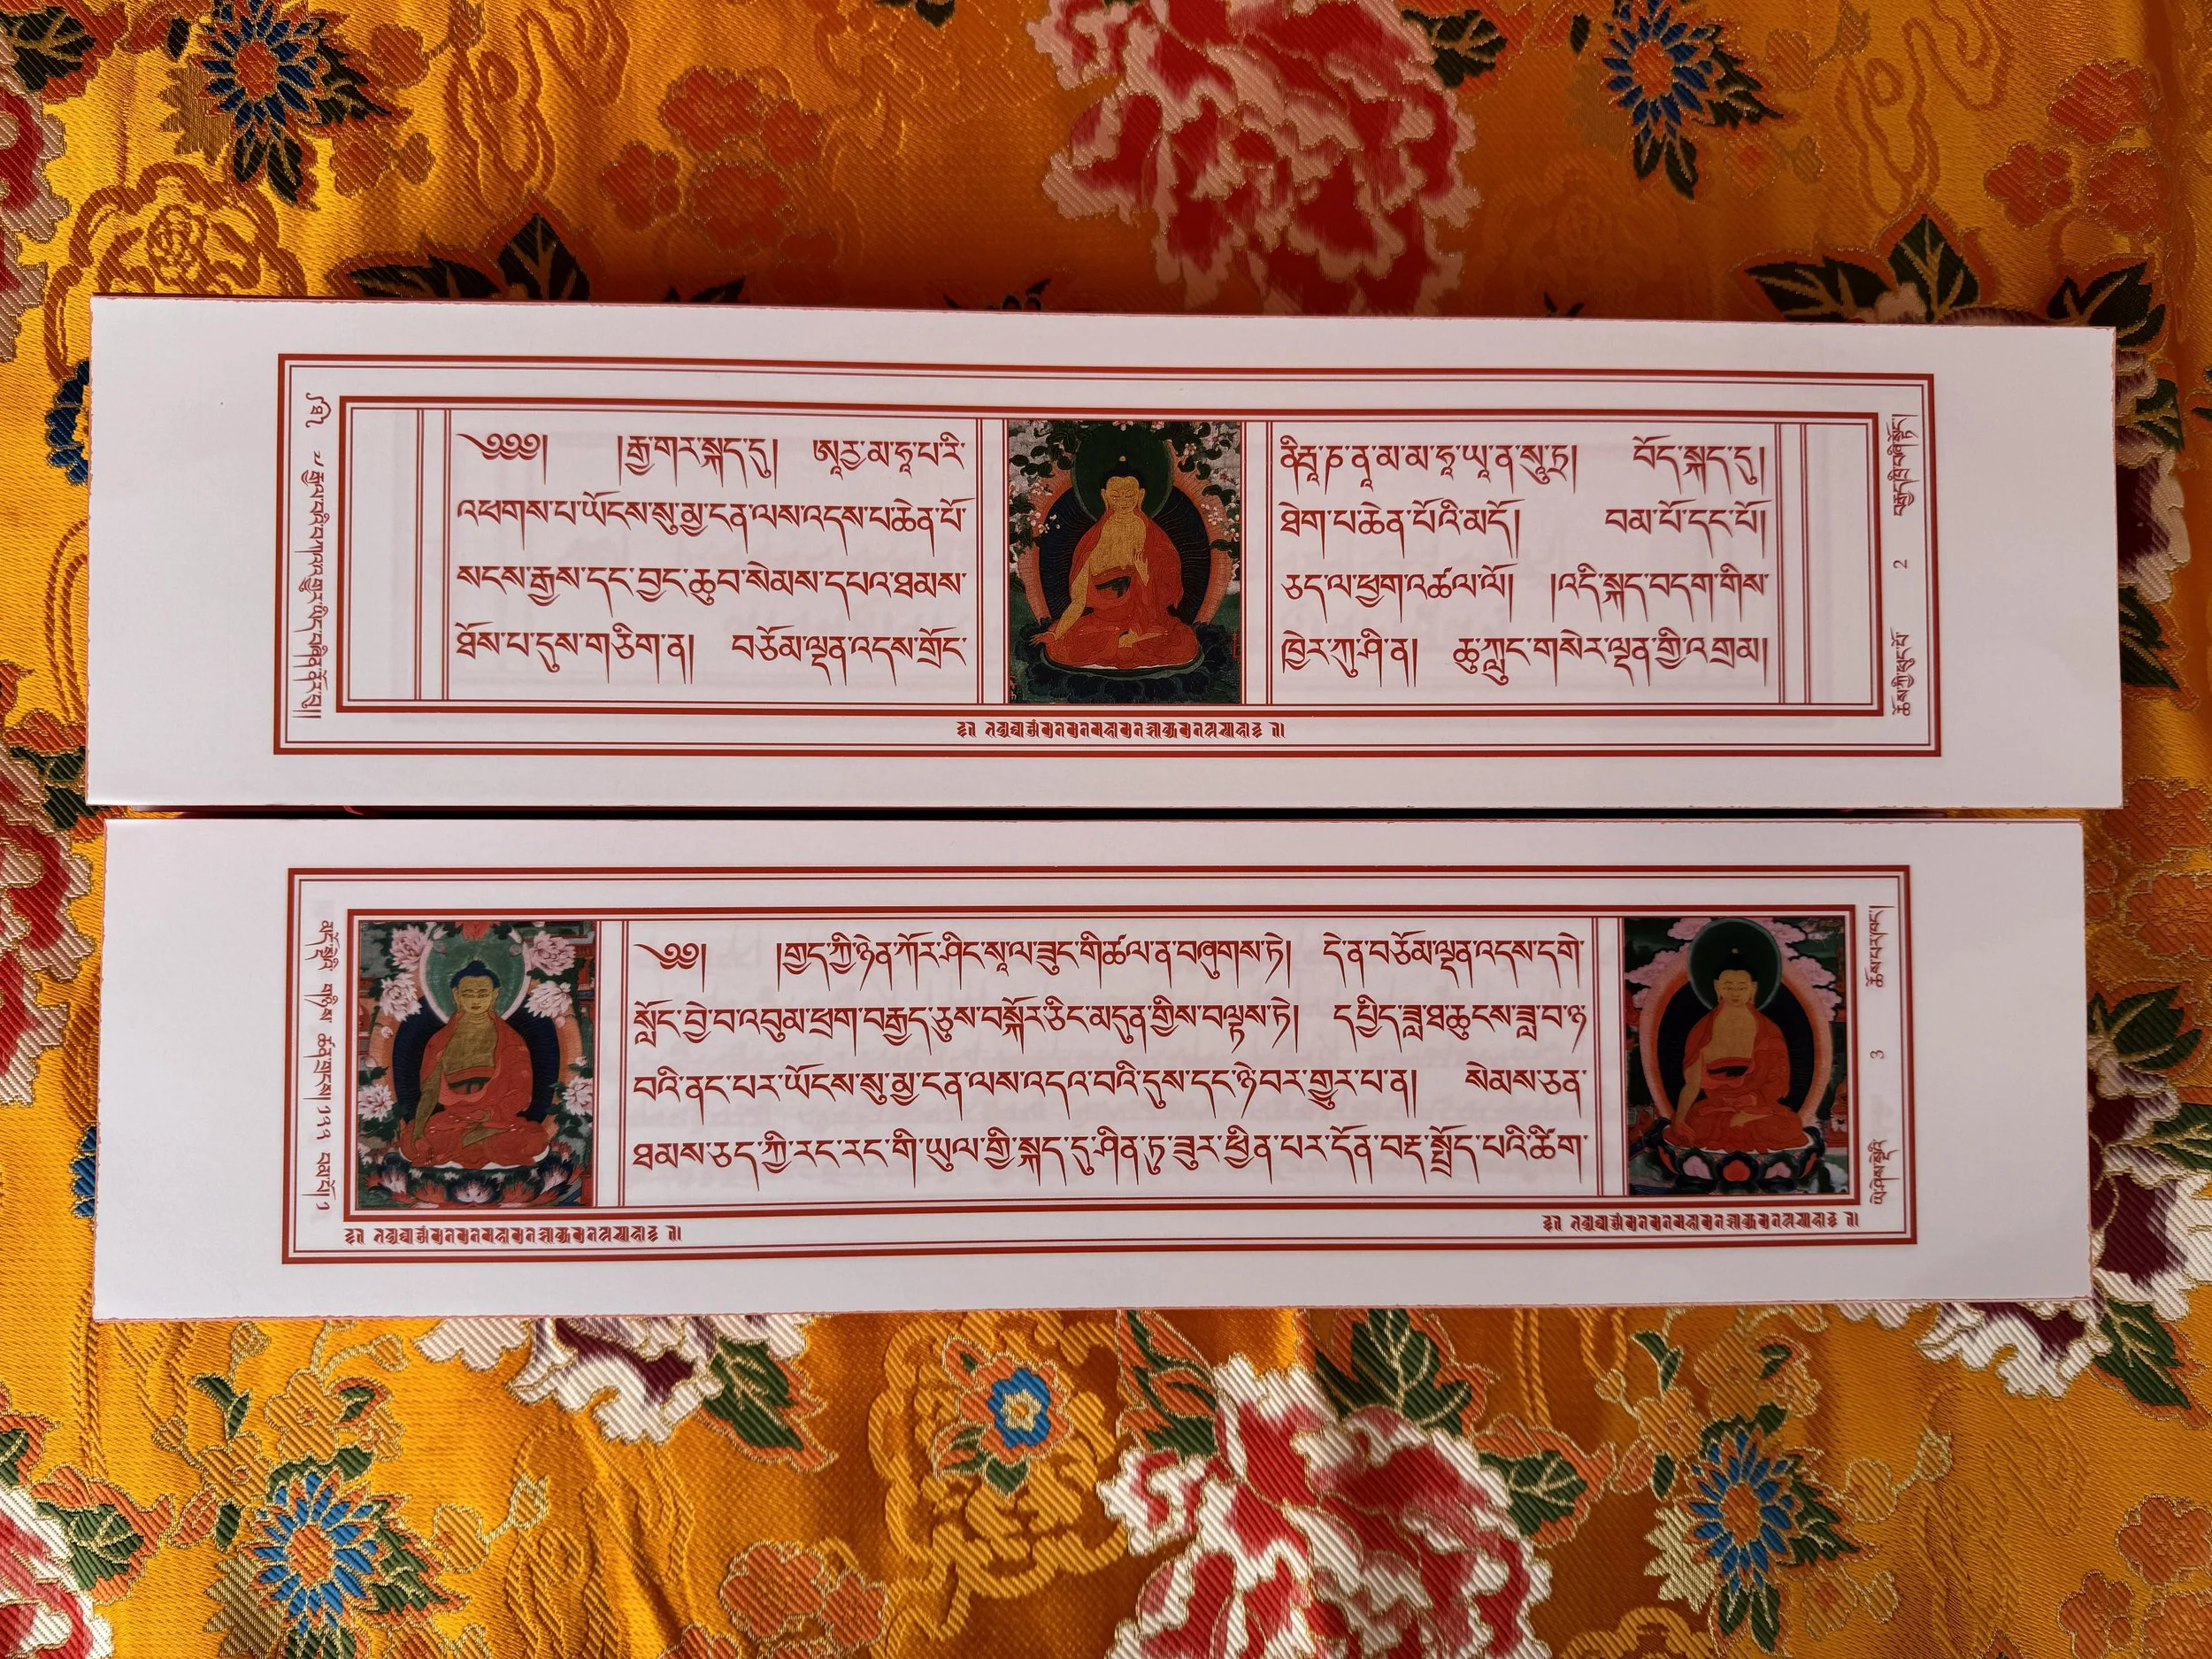 ༄༅༅། །རྒྱ་གར་སྐད་དུ། ཨཱརྱ་མ་ཧཱ་པ་རི་ ནིརྦཱ་ཎ་ནཱ་མ་མ་ཧཱ་ཡཱ་ན་སཱུ་ཏྲ། བོད་སྐད་དུ།
འཕགས་པ་ཡོངས་སུ་མྱ་ངན་ལས་འདས་པ་ཆེན་པོ་ ཐེག་པ་ཆེན་པོའི་མདོ། བམ་པོ་དང་པོ།
སངས་རྒྱས་དང་བྱང་ཆུབ་སེམས་དཔའ་ཐམས་ ཅད་ལ་ཕྱག་འཚལ་ལོ། །འདི་སྐད་བདག་གིས་
ཐོས་པ་དུས་གཅིག་ན། བཅོམ་ལྡན་འདས་གྲོང་ ཁྱེར་ཀུ་ཤི་ན། ཆུ་ཀླུང་གསེར་ལྡན་གྱི་འགྲམ།
2
༄༅། །གྱད་ཀྱི་ཉེན་ཀོར་ཤིང་སཱ་ལ་ཟུང་གི་ཚལ་ན་བཞུགས་ཏེ། དེ་ན་བཅོམ་ལྡན་འདས་དགེ་
སློང་བྱེ་བ་འབུམ་ཕྲག་བརྒྱད་ཅུས་བསྐོར་ཅིང་མདུན་གྱིས་བལྟས་ཏེ། དཔྱིད་ཟླ་ཐ་ཆུངས་ཟླ་བ་ཉ་
བའི་ནང་པར་ཡོངས་སུ་མྱ་ངན་ལས་འདའ་བའི་དུས་དང་ཉེ་བར་གྱུར་པ་ན། སེམས་ཅན་
ཐམས་ཅད་ཀྱི་རང་རང་གི་ཡུལ་གྱི་སྐད་དུ་ཤིན་ཏུ་ཟུར་ཕྱིན་པར་དོན་བརྡ་སྤྲོད་པའི་ཚིག་
3